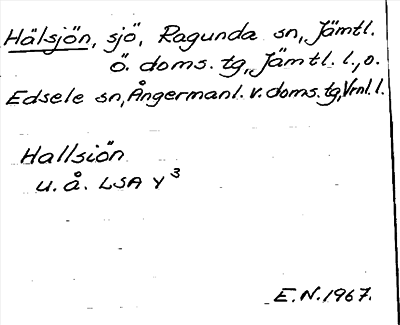 Hälsjön, sjö, Ragunda sn, Jämtl.
ö. doms. tg, Jämtl. l., o.
Edsele sn, Ångermanl. v. doms. tg, Vrnl. l.
Hallsiön
u. å. LSA Y3
E. N. 1967.